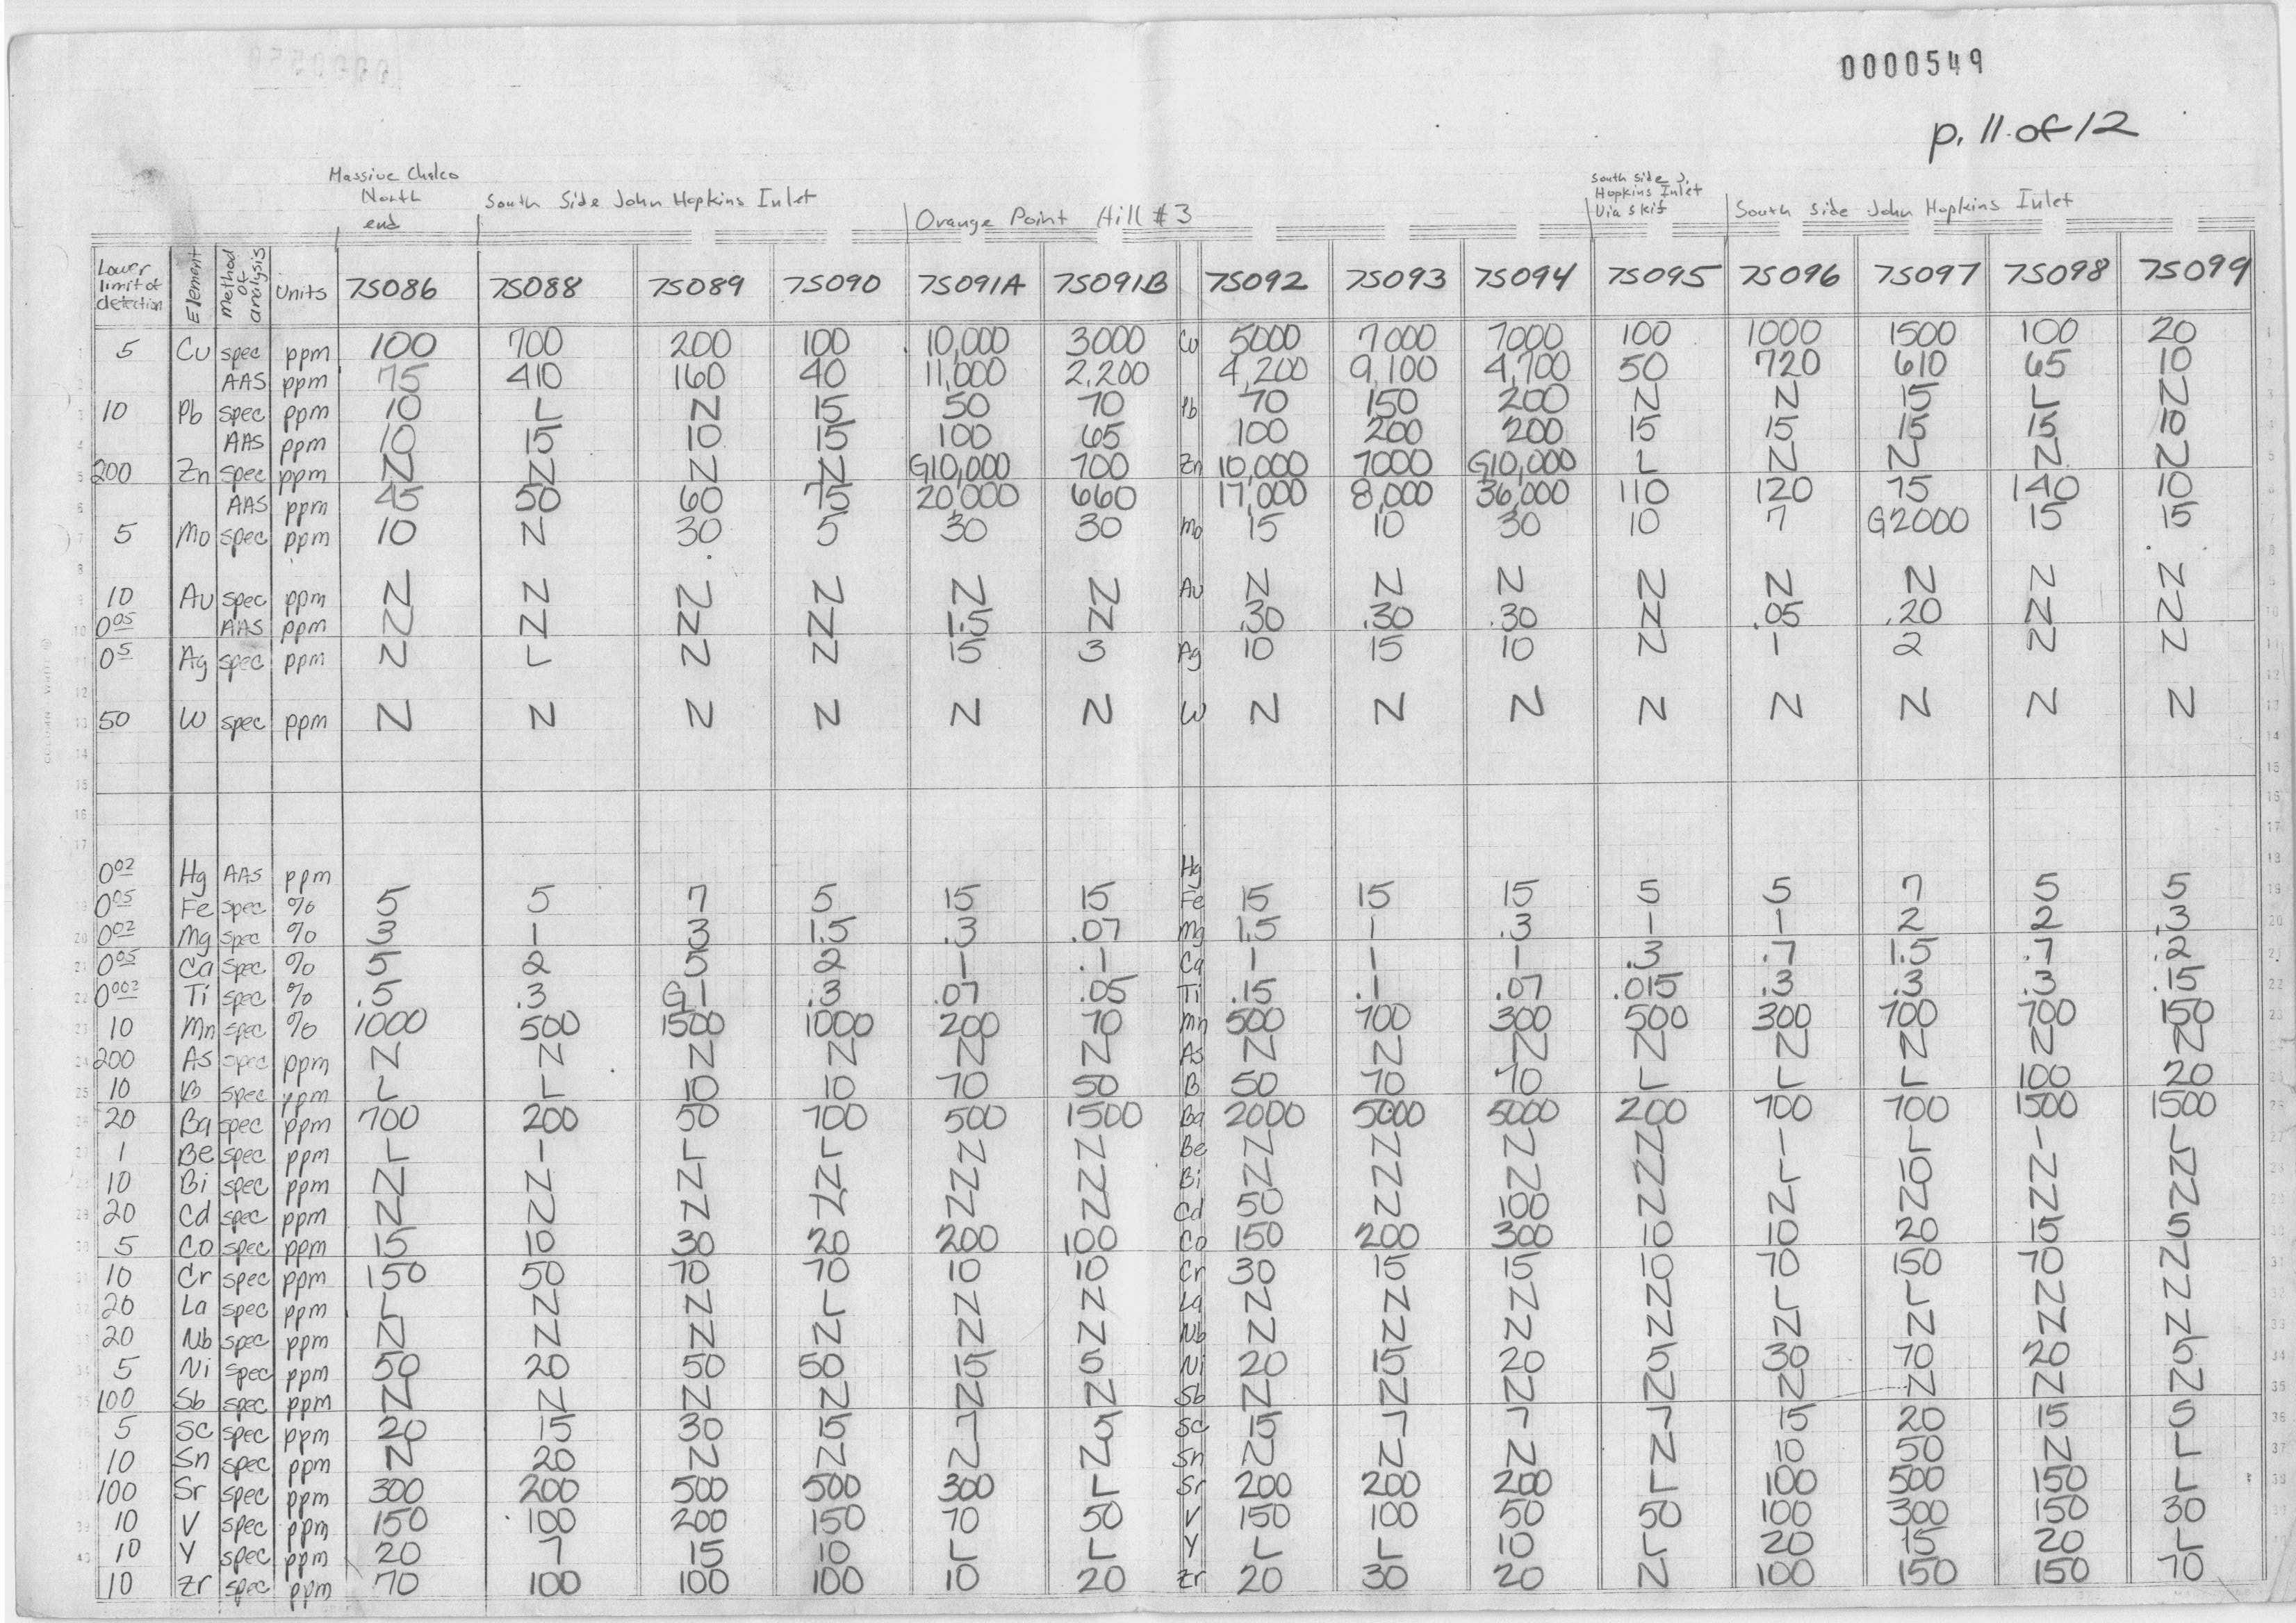 0000549
p. 11 of 12
Massive Chalco
North
end
South Side John Hopkins Inlet
Orange Point Hill #3
South Side J.
Hopkins Inlet
Via skif
South side John Hopkins Inlet
Lower limit of detection Element Method of analysis Units 75086 75088 75089 75090 75091A 75091B 75092 75093 75094 75095 75096 75097 75098 75099
5 Cu spec ppm 100 700 200 100 10,000 3000 Cu 5000 7000 7000 100 1000 1500 100 20
AAS ppm 75 410 160 40 11,000 2,200 4,200 9,100 4,700 50 720 610 65 10
10 Pb spec ppm 10 L N 15 50 70 Pb 70 150 200 N N 15 L N
AAS ppm 10 15 10 15 100 65 100 200 200 15 15 15 15 10
200 Zn spec ppm N N N N G10,000 700 Zn 10,000 7000 G10,000 L N N N N
AAS ppm 45 50 60 75 20,000 660 17,000 8,000 36,000 110 120 75 140 10
5 Mo spec ppm 10 N 30 5 30 30 Mo 15 10 30 10 7 G2000 15 15
10 Au spec ppm N N N N N N Au N N N N N N N N
0.05 AAS ppm N N N N 1.5 N .30 .30 .30 N .05 .20 N N
0.5 Ag spec ppm N L N N 15 3 Ag 10 15 10 N 1 2 N N
50 W spec ppm N N N N N N W N N N N N N N N
0.02 Hg AAS ppm Hg
0.05 Fe spec % 5 5 7 5 15 15 Fe 15 15 15 5 5 7 5 5
0.02 Mg spec % 3 1 3 1.5 .3 .07 Mg 1.5 1 .3 1 1 2 2 .3
0.05 Ca spec % 5 2 5 2 1 .1 Ca 1 1 1 .3 .7 1.5 .7 .2
0.002 Ti spec % .5 .3 G1 .3 .07 .05 Ti .15 .1 .07 .015 .3 .3 .3 .15
10 Mn spec % 1000 500 1500 1000 200 70 Mn 500 700 300 500 300 700 700 150
200 As spec ppm N N N N N N As N N N N N N N N
10 B spec ppm L L 10 10 70 50 B 50 70 70 L L L 100 20
20 Ba spec ppm 700 200 50 700 500 1500 Ba 2000 5000 5000 200 700 700 1500 1500
1 Be spec ppm L 1 L L N N Be N N N N 1 L 1 L
10 Bi spec ppm N N N N N N Bi N N N N L 10 N N
20 Cd spec ppm N N N N N N Cd 50 N 100 N N N N N
5 Co spec ppm 15 10 30 20 200 100 Co 150 200 300 10 10 20 15 5
10 Cr spec ppm 150 50 70 70 10 10 Cr 30 15 15 10 70 150 70 N
20 La spec ppm L N N L N N La N N N N L L N N
20 Nb spec ppm N N N N N N Nb N N N N N N N N
5 Ni spec ppm 50 20 50 50 15 5 Ni 20 15 20 5 30 70 20 5
100 Sb spec ppm N N N N N N Sb N N N N N N N N
5 Sc spec ppm 20 15 30 15 7 5 Sc 15 7 7 7 15 20 15 5
10 Sn spec ppm N 20 N N N N Sn N N N N 10 50 N L
100 Sr spec ppm 300 200 500 500 300 L Sr 200 200 200 L 100 500 150 L
10 V spec ppm 150 100 200 150 70 50 V 150 100 50 50 100 300 150 30
10 Y spec ppm 20 7 15 10 L L Y L L 10 L 20 15 20 L
10 Zr spec ppm 70 100 100 100 10 20 Zr 20 30 20 N 100 150 150 70